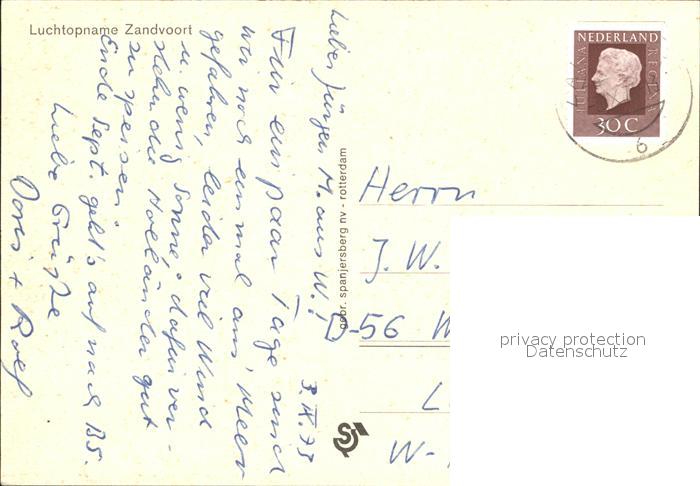 Luchtopname Zandvoort
3.IX.73
Lieber Jürgen M. aus W.!
Für ein paar Tage sind
wir noch einmal ans Meer
gefahren, leider viel Wind
u. wenig Sonne; dafür ver-
stehn die Holländer gut
zu speisen.
Ende Sept. geht's auf nach
Liebe Grüße
Doris + Rolf
gebr. spanjersberg nv - rotterdam
NEDERLAND
JULIANA REGINA
30 C
6
Herrn
J. W.
D-56 W
L
W-
privacy protection
Datenschutz